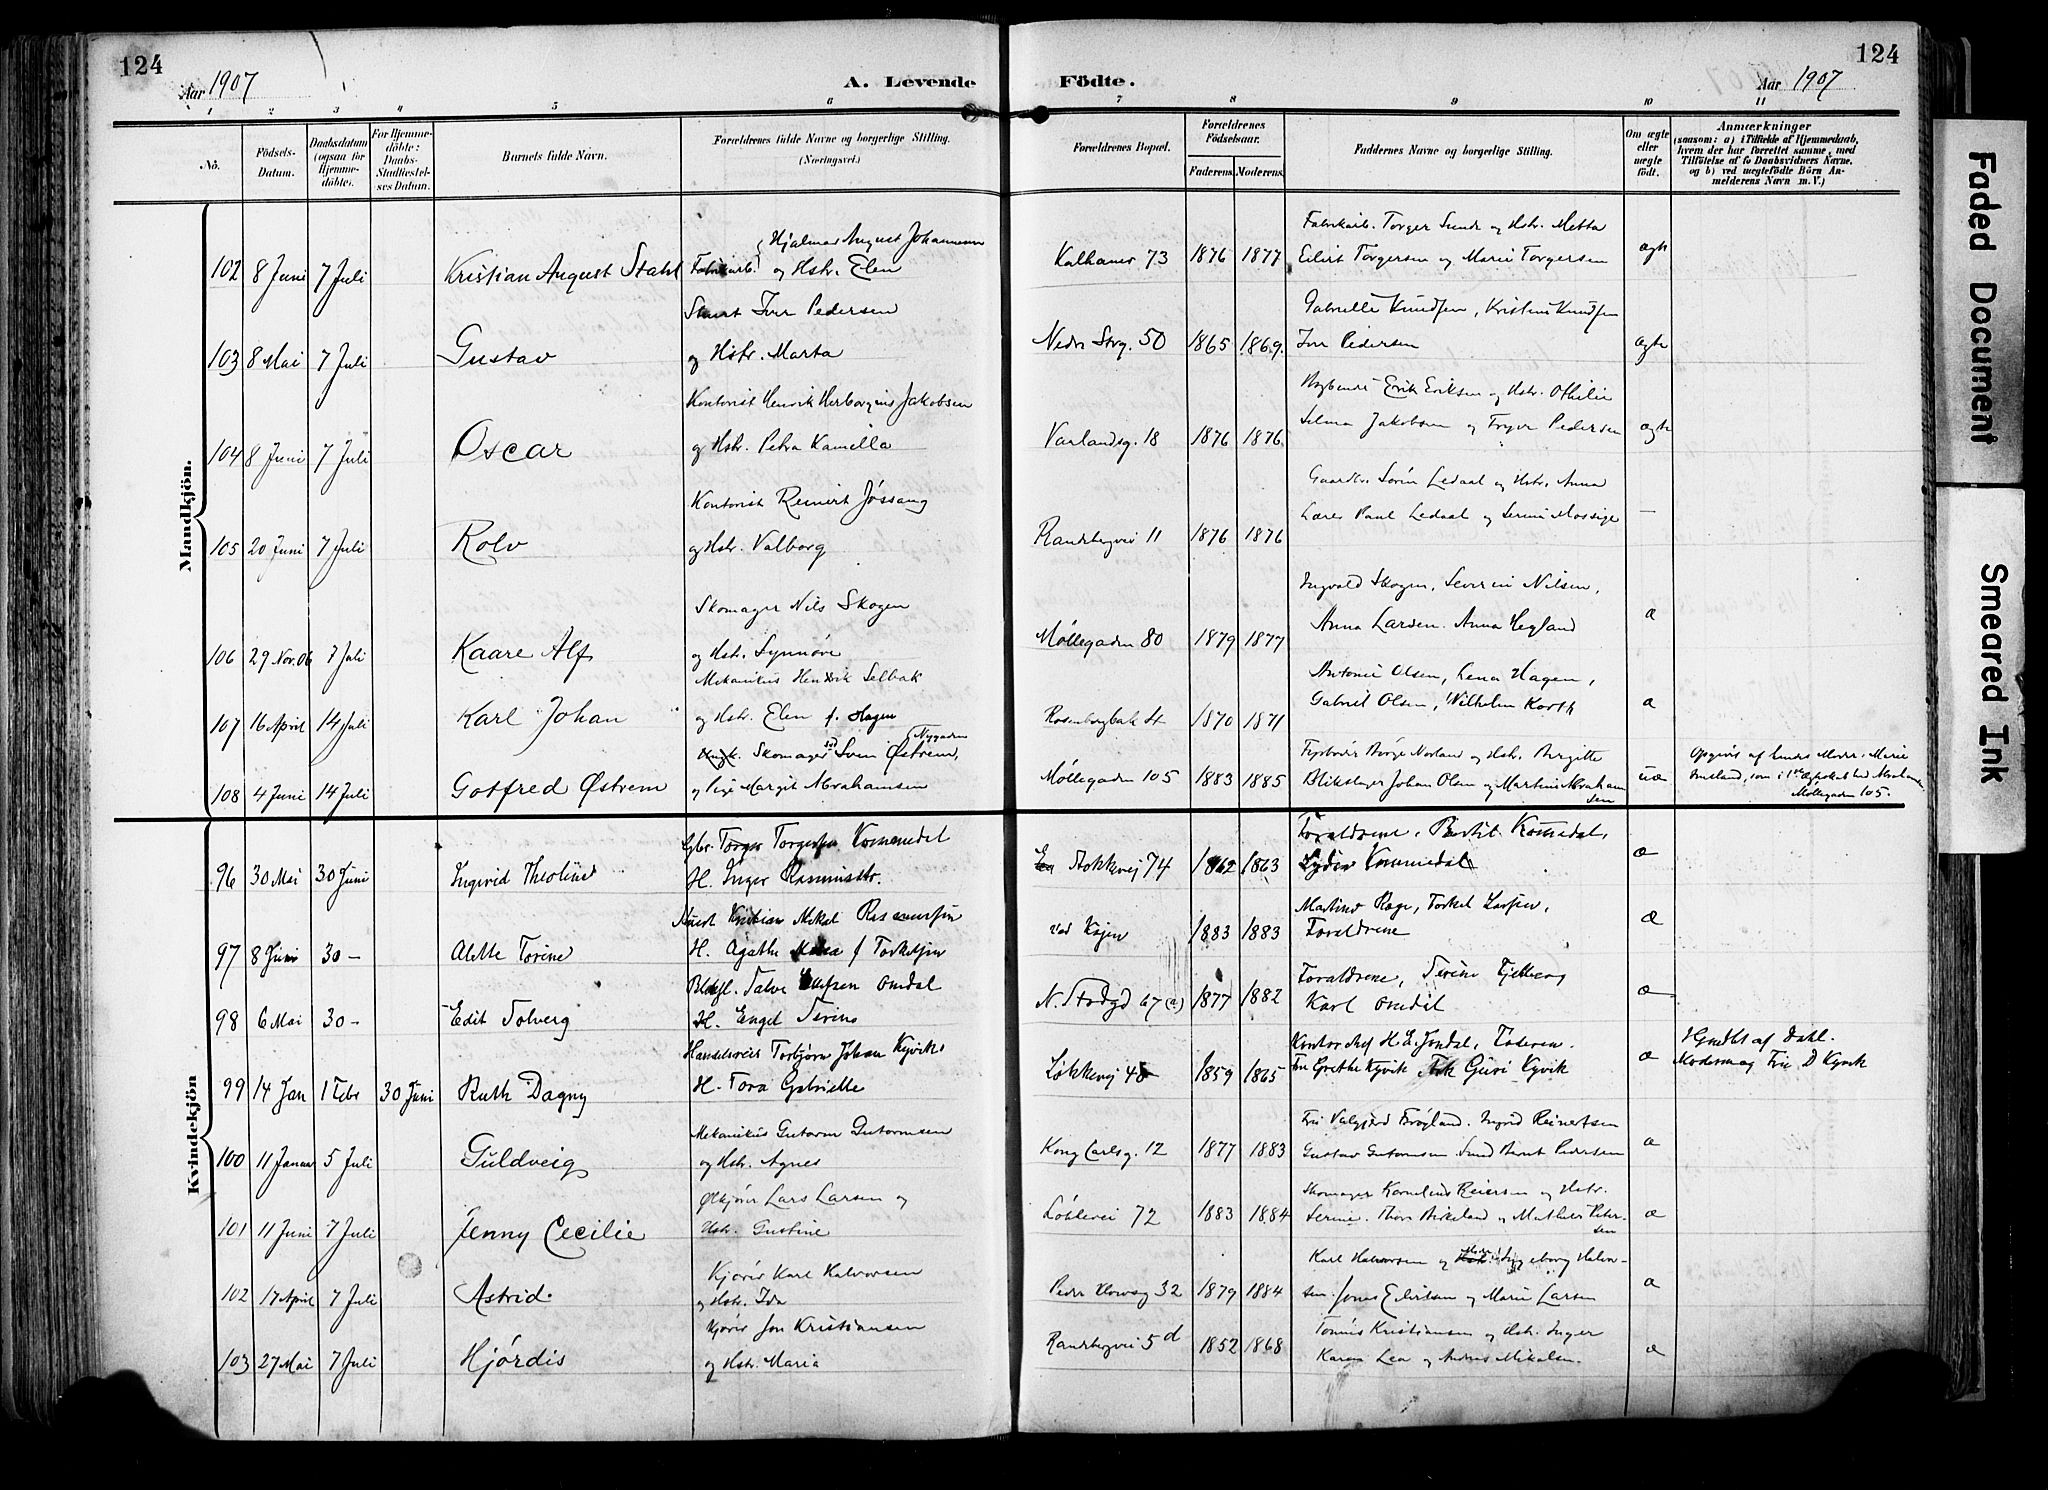 124
124
Aar 1907
A. Levende Födte.
Aar 1907
1 2 3 4 5 6 7 8 9 10 11
No.
Födsels-Datum.
Daabsdatum (ogsaa for Hjemme-döbte).
For Hjemme-döbte: Daabs-Stadfæstel-ses Datum.
Barnets fulde Navn.
Forældrenes fulde Navne og borgerlige Stilling.
(Næringsvei.)
Forældrenes Bopæl.
Forældrenes Födselsaar.
Faderens. Moderens.
Faddernes Navne og borgerlige Stilling.
Om ægte eller uægte födt.
Anmærkninger
(saasom: a) i Tilfælde af Hjemmedaab, hvem der har forrettet samme, med Tilföielse af to Daabsvidners Navne. og b) ved uægtefödte Börn An-melderens Navn m. V.)
Mandkjön.
Hjalmar August Johannesen Fabrikarb. Torger Sunde og Hstr. Metta
102 8 Juni 7 Juli Kristian August Stahl Fabrikarb. og Hstr. Elen Kalhamer 73 1876 1877 Eilert Torgersen og Marie Torgersen ægte
Stuert Iver Pedersen Gabrielle Knudsen, Kristine Knudsen
103 8 Mai 7 Juli Gustav og Hstr. Marta Nedre Strg. 50 1865 1869. Iver Pedersen ægte
Kontorist Henrik Herborgius Jakobsen Erik Eriksen og Hstr. Othilie
104 8 Juni 7 Juli Oscar og Hstr. Petra Kamilla Varlandsg. 18 1876 1876. Selma Jakobsen og Pedersen ægte
Kontorist Reinert Jøssang Gaardbr. Sørin Ledaal og Hstr. Anna
105 20 Juni 7 Juli Rolv og Hstr. Valborg Randabergvei 11 1876 1876 Lærer Paul Ledaal og Serine Mossige —
Skomager Nils Skogen Ingvald Skogen, Severin Nilsen,
106 29 Nov. 06 7 Juli Kaare Alf og Hstr. Synnøve Møllegaden 80 1879 1877 Anna Larsen. Anna Hegland æ
Mekanikus Hendrik Selbak Antonie Olsen, Lena Hagen,
107 16 April 14 Juli Karl Johan og Hstr. Elen f. Hagen Rosenborgbak 1870 1871 Gabriel Olsen, Wilhelm Korth æ
Skomager Sven Østrem, Nygaden Børge Norland og Hstr. Birgitte Opgivet af Moder: Marie
108 4 Juni 14 Juli Gotfred Østrem og pige Margit Abrahamsen Møllegaden 105 1883 1885 Blikslager Johan Olsen og Martine Abrahamsen uæ Møllegaden 105.
Kvindekjön
Torger Torgersen Kommedal Forældrene, Bertil Kommedal,
96 30 Mai 30 Juni Ingerid Theoline H. Inger Rasmusdtr. Stokkevej 74 1862 1863 Kommedal æ
Stuert Kristian Mikal Rasmussen Martine Rage, Torkel Larsen,
97 8 Juni 30 — Alette Torine H. Agathe f Torkelsen ved Kajen 1883 1883 Forældrene æ
Talve Omdal Forældrene, Serine Tjelberg
98 6 Mai 30 — Edit Solveig H. Engel Serine N. Stradgd 67 (a) 1877 1882 Karl Omdal æ
Handelsreis Torbjørn Johan Kyvik Kontorchef H. E. Jondal, Faderen. Hjdbt af Dahl.
99 14 Jan 1 Febr 30 Juni Ruth Dagny H. Tora Gabrielle Løkkevej 48 1859 1865 Fru Grethe Kyvik Frk Guri Kyvik æ Modersmag Fru D Kyvik
Mekanikus Gutorm Gutormsen Fru Valgjerd Brøgland. Ingrid Reinertsen
100 11 Januar 5 Juli Guldveig og Hstr. Agnes Kong Carlsg. 12 1877 1883 Gustav Gutormsen. Bernt Pedersen æ
Ølkjører Lars Larsen og Skomager Kornelius Reiersen og Hstr.
101 11 Juni 7 Juli Jenny Cecilie Hstr. Gustine Løkkevei 72 1883 1884 Serine. Thora Birkeland og Mathias Petersen æ
Kjører Karl Halvorsen Karl Halvorsen og Moder Ingeborg Halvor-
102 17 April 7 Juli Astrid. og Hstr. Ida Peder Klowsg 32 1879 1884 sen. Jonas Eilertsen og Marie Larsen æ
Kjører Jon Kristiansen Tønnes Kristiansen og Hstr. Inger
103 27 Mai 7 Juli Hjørdis og Hstr. Maria Randabergvei 5 d 1852 1868 Karen Lea og Andreas Mikalsen. æ
Faded Document
Smeared Ink